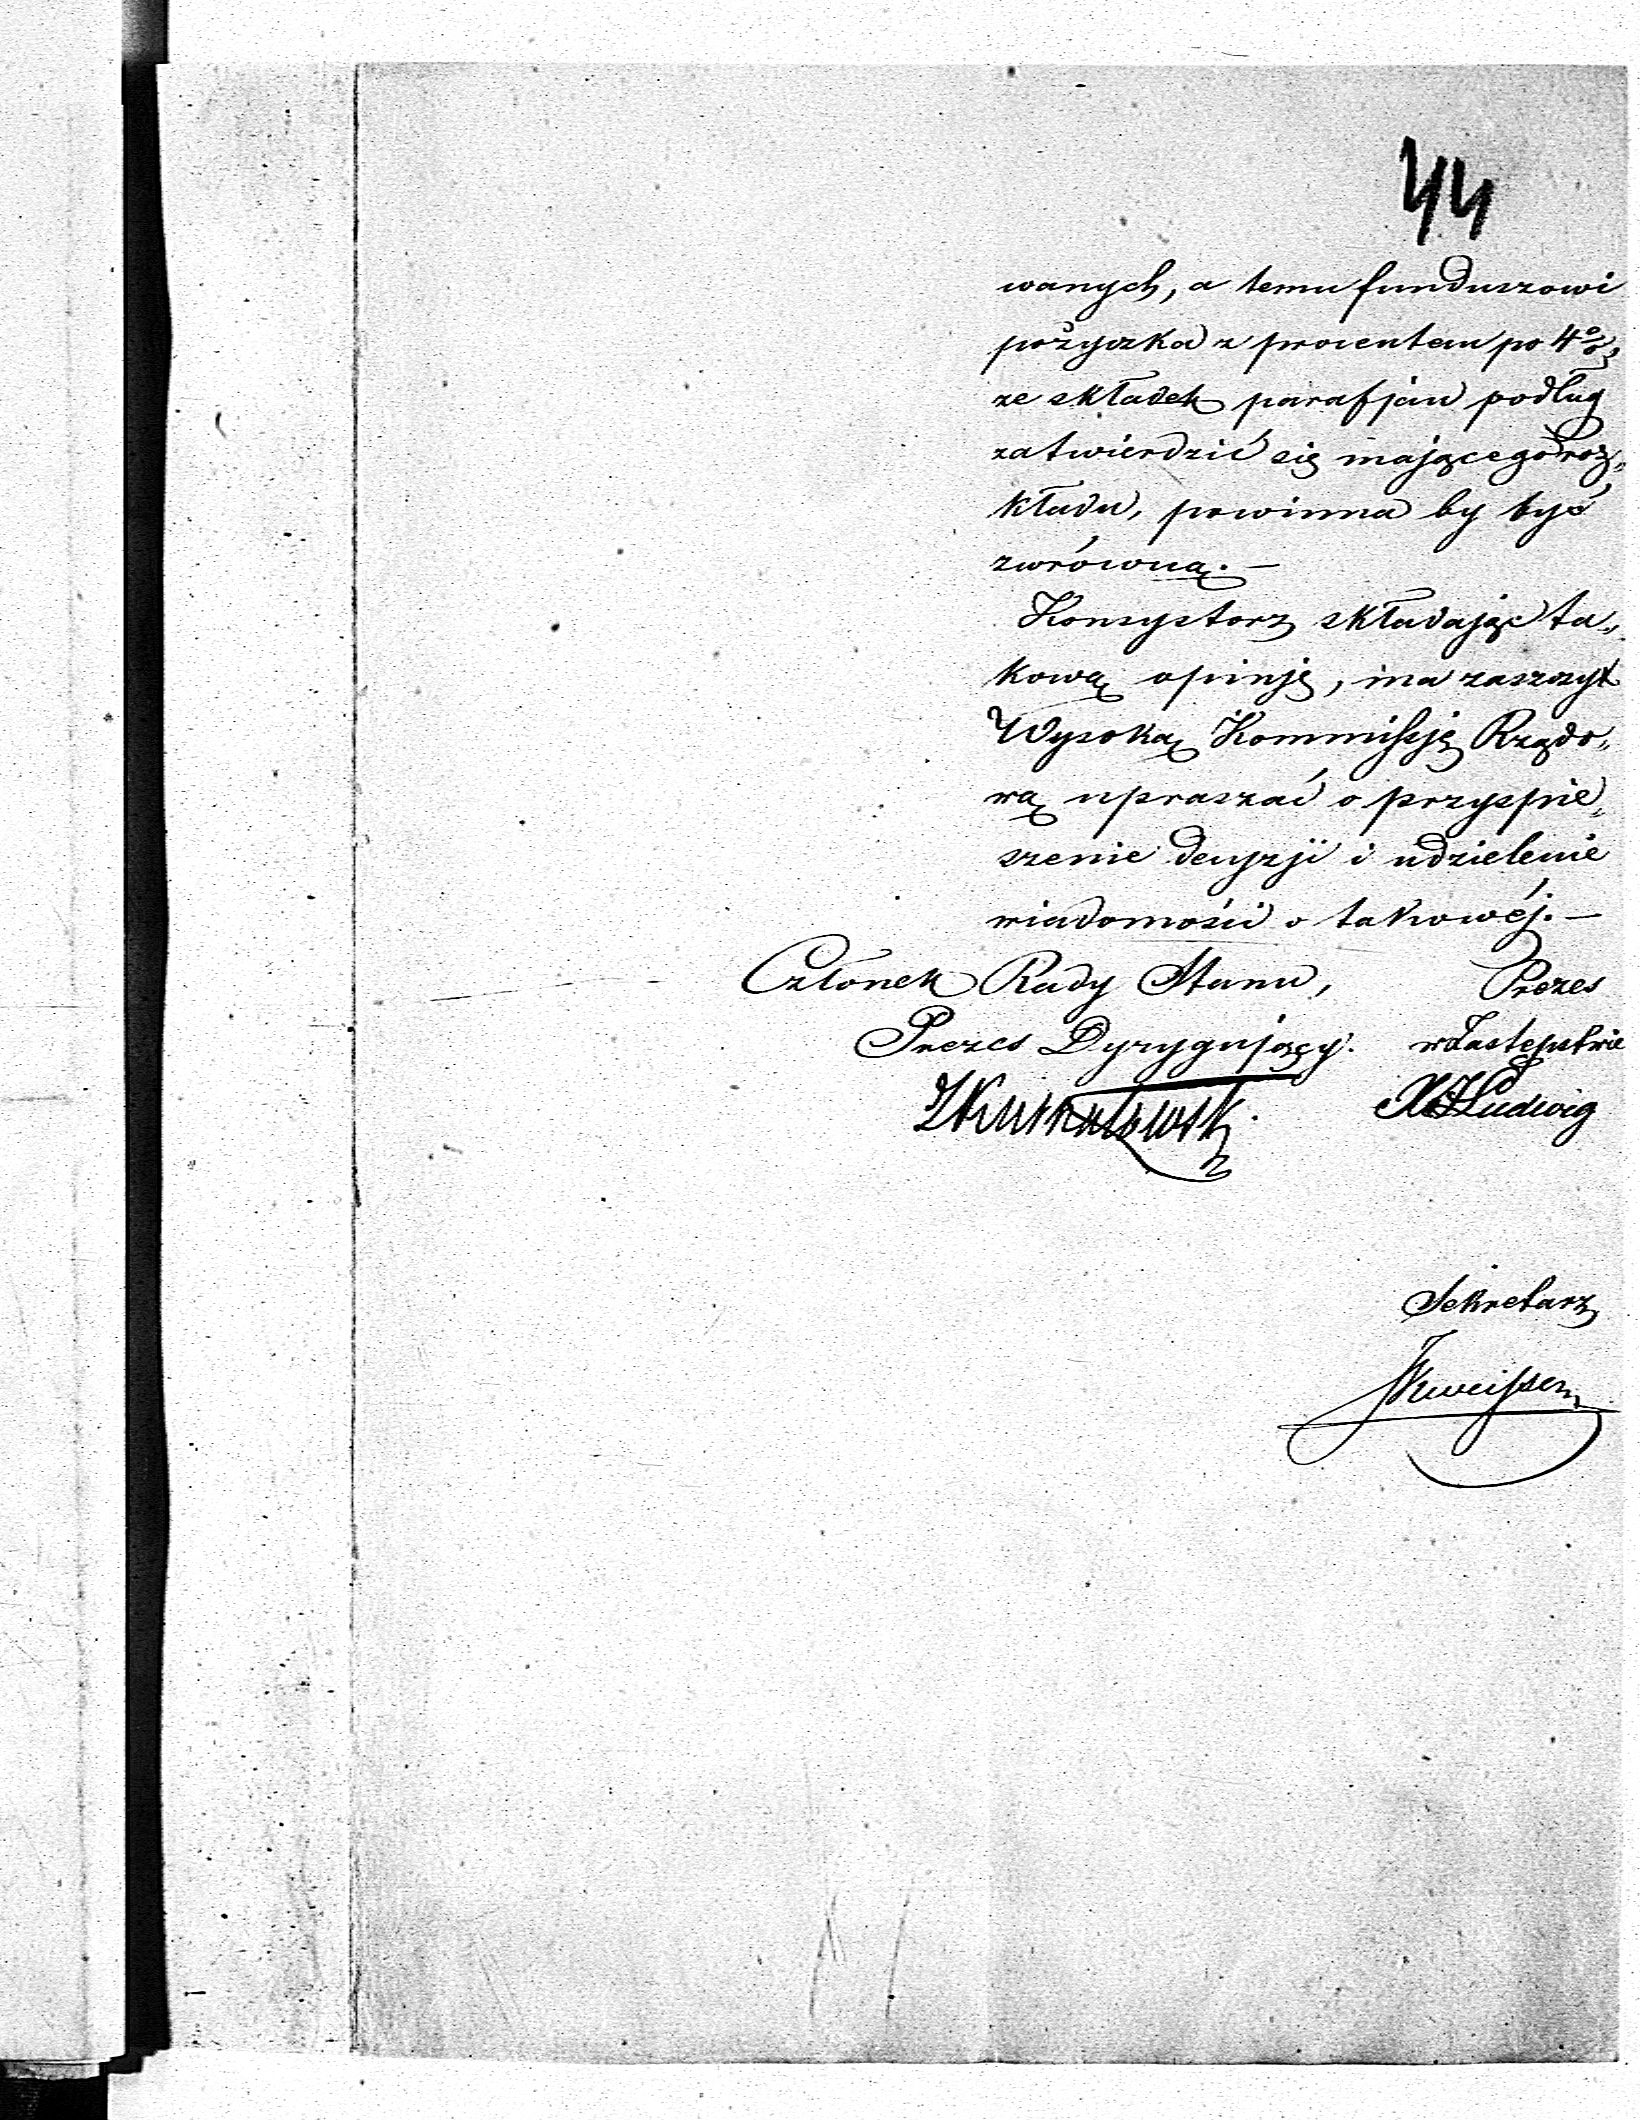 44
wanych, a temu funduszowi
pożyczka z procentem po 4%
ze składek parafjan podług
zatwierdzić się mającego roz„
kładu, powinna by być
zwróconą. —
Konsystorz składając ta„
kową opinję, ma zaszczyt
Wysoką Kommissję Rządo„
wą upraszać o przyspie„
szenie decyzji i udzielenie
wiadomości o takowéj. —
Członek Rady Stanu, Prezes
Prezes Dyrygujący. w Zastępstwie
Ludwig
Sekretarz